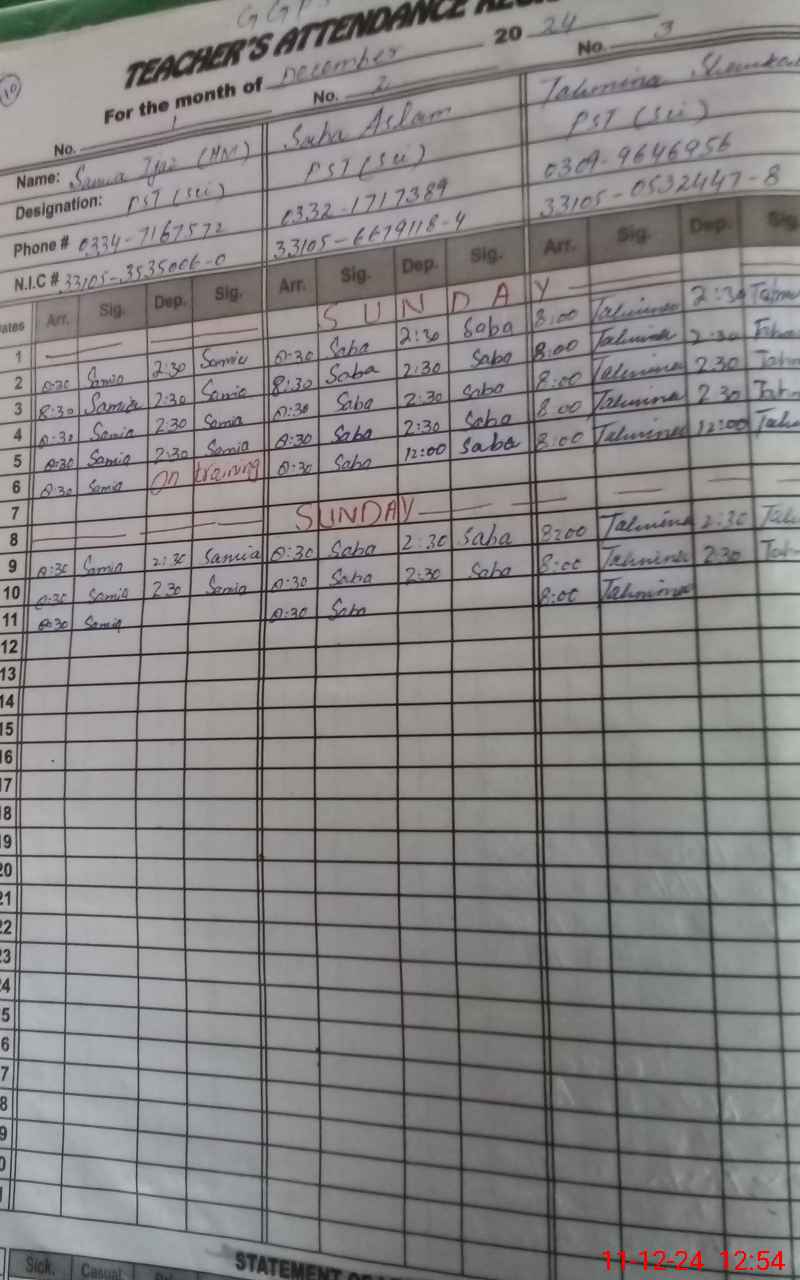 G G P S
TEACHER'S ATTENDANCE REG
For the month of December 2024
10
No. 1 No. 2 No. 3
Name: Samia Ijaz (HM) Saba Aslam Tahmina Shouka
Designation: PST (Sci) PST (Sci) PST (Sci)
Phone # 0334-7167572 0332-1717389 0309-9646956
N.I.C # 33105-3535006-0 33105-6679118-4 33105-0532447-8
ates Arr. Sig. Dep. Sig. Arr. Sig. Dep. Sig. Arr. Sig. Dep. Sig
1 SUNDAY
2 8:30 Samia 2:30 Samia 8:30 Saba 2:30 Saba 8:00 Tahmina 2:30 Tahm
3 8:30 Samia 2:30 Samia 8:30 Saba 2:30 Saba 8:00 Tahmina 2:30 Tahm
4 8:30 Samia 2:30 Samia 8:30 Saba 2:30 Saba 8:00 Tahmina 2:30 Tahm
5 8:30 Samia 2:30 Samia 8:30 Saba 2:30 Saba 8:00 Tahmina 2:30 Tah
6 8:30 Samia On training 8:30 Saba 12:00 Saba 8:00 Tahmina 12:00 Tah
7
8 SUNDAY
9 8:30 Samia 2:30 Samia 8:30 Saba 2:30 Saba 8:00 Tahmina 2:30 Tah
10 8:30 Samia 2:30 Samia 8:30 Saba 2:30 Saba 8:00 Tahmina 2:30 Tah
11 8:30 Samia 8:30 Saba 8:00 Tahmina
12
13
14
15
16
17
18
19
20
21
22
3
4
5
6
7
8
9
0
1
STATEMENT OF
Sick. Casual
11-12-24 12:54